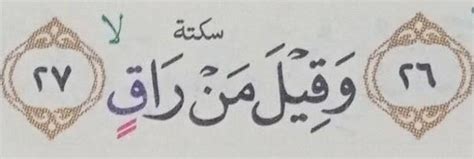 لا سكتة
٢٦ وَقِيْلَ مَنْ رَاقٍ ٢٧